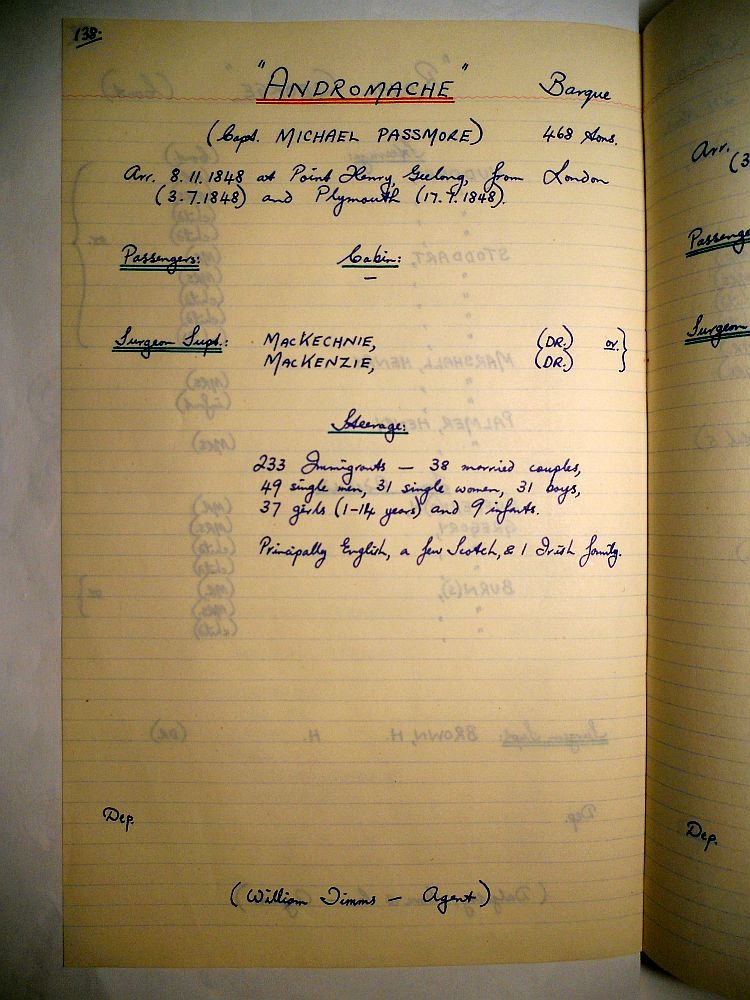 138.
"ANDROMACHE" Barque
(Capt. MICHAEL PASSMORE) 468 tons.
Arr. 8.11.1848 at Point Henry, Geelong, from London
(3.7.1848) and Plymouth (17.7.1848).
Passengers: Cabin:
—
Surgeon Supt.: MACKECHNIE, (DR.) or }
MACKENZIE, (DR.)
Steerage:
233 Immigrants — 38 married couples,
49 single men, 31 single women, 31 boys,
37 girls (1-14 years) and 9 infants.
Principally English, a few Scotch, & 1 Irish family.
Dep.
(William Timms — Agent)
Arr.
(3
Passenge
Surgeon
Dep.